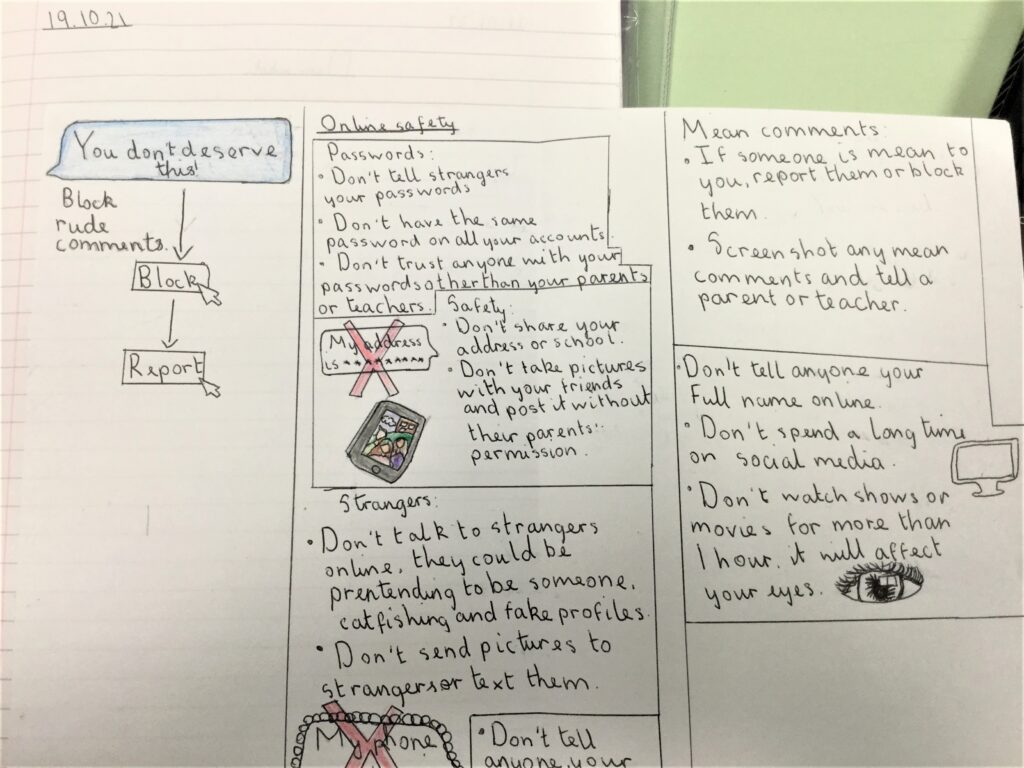 19.10.21
You don't deserve
this!
Block
rude
comments.
Block
Report
Online safety
Passwords:
• Don't tell strangers
your passwords
• Don't have the same
password on all your accounts
• Don't trust anyone with your
passwords other than your parents
or teachers.
My address
is ********
Safety:
• Don't share your
address or school.
• Don't take pictures
with your friends
and post it without
their parents'
permission.
Strangers:
• Don't talk to strangers
online, they could be
prentending to be someone,
catfishing and fake profiles.
• Don't send pictures to
strangers or text them.
My phone
• Don't tell
anyone your
Mean comments:
• If someone is mean to
you, report them or block
them.
• Screenshot any mean
comments and tell a
parent or teacher.
• Don't tell anyone your
Full name online.
• Don't spend a long time
on social media.
• Don't watch shows or
movies for more than
1 hour, it will affect
your eyes.